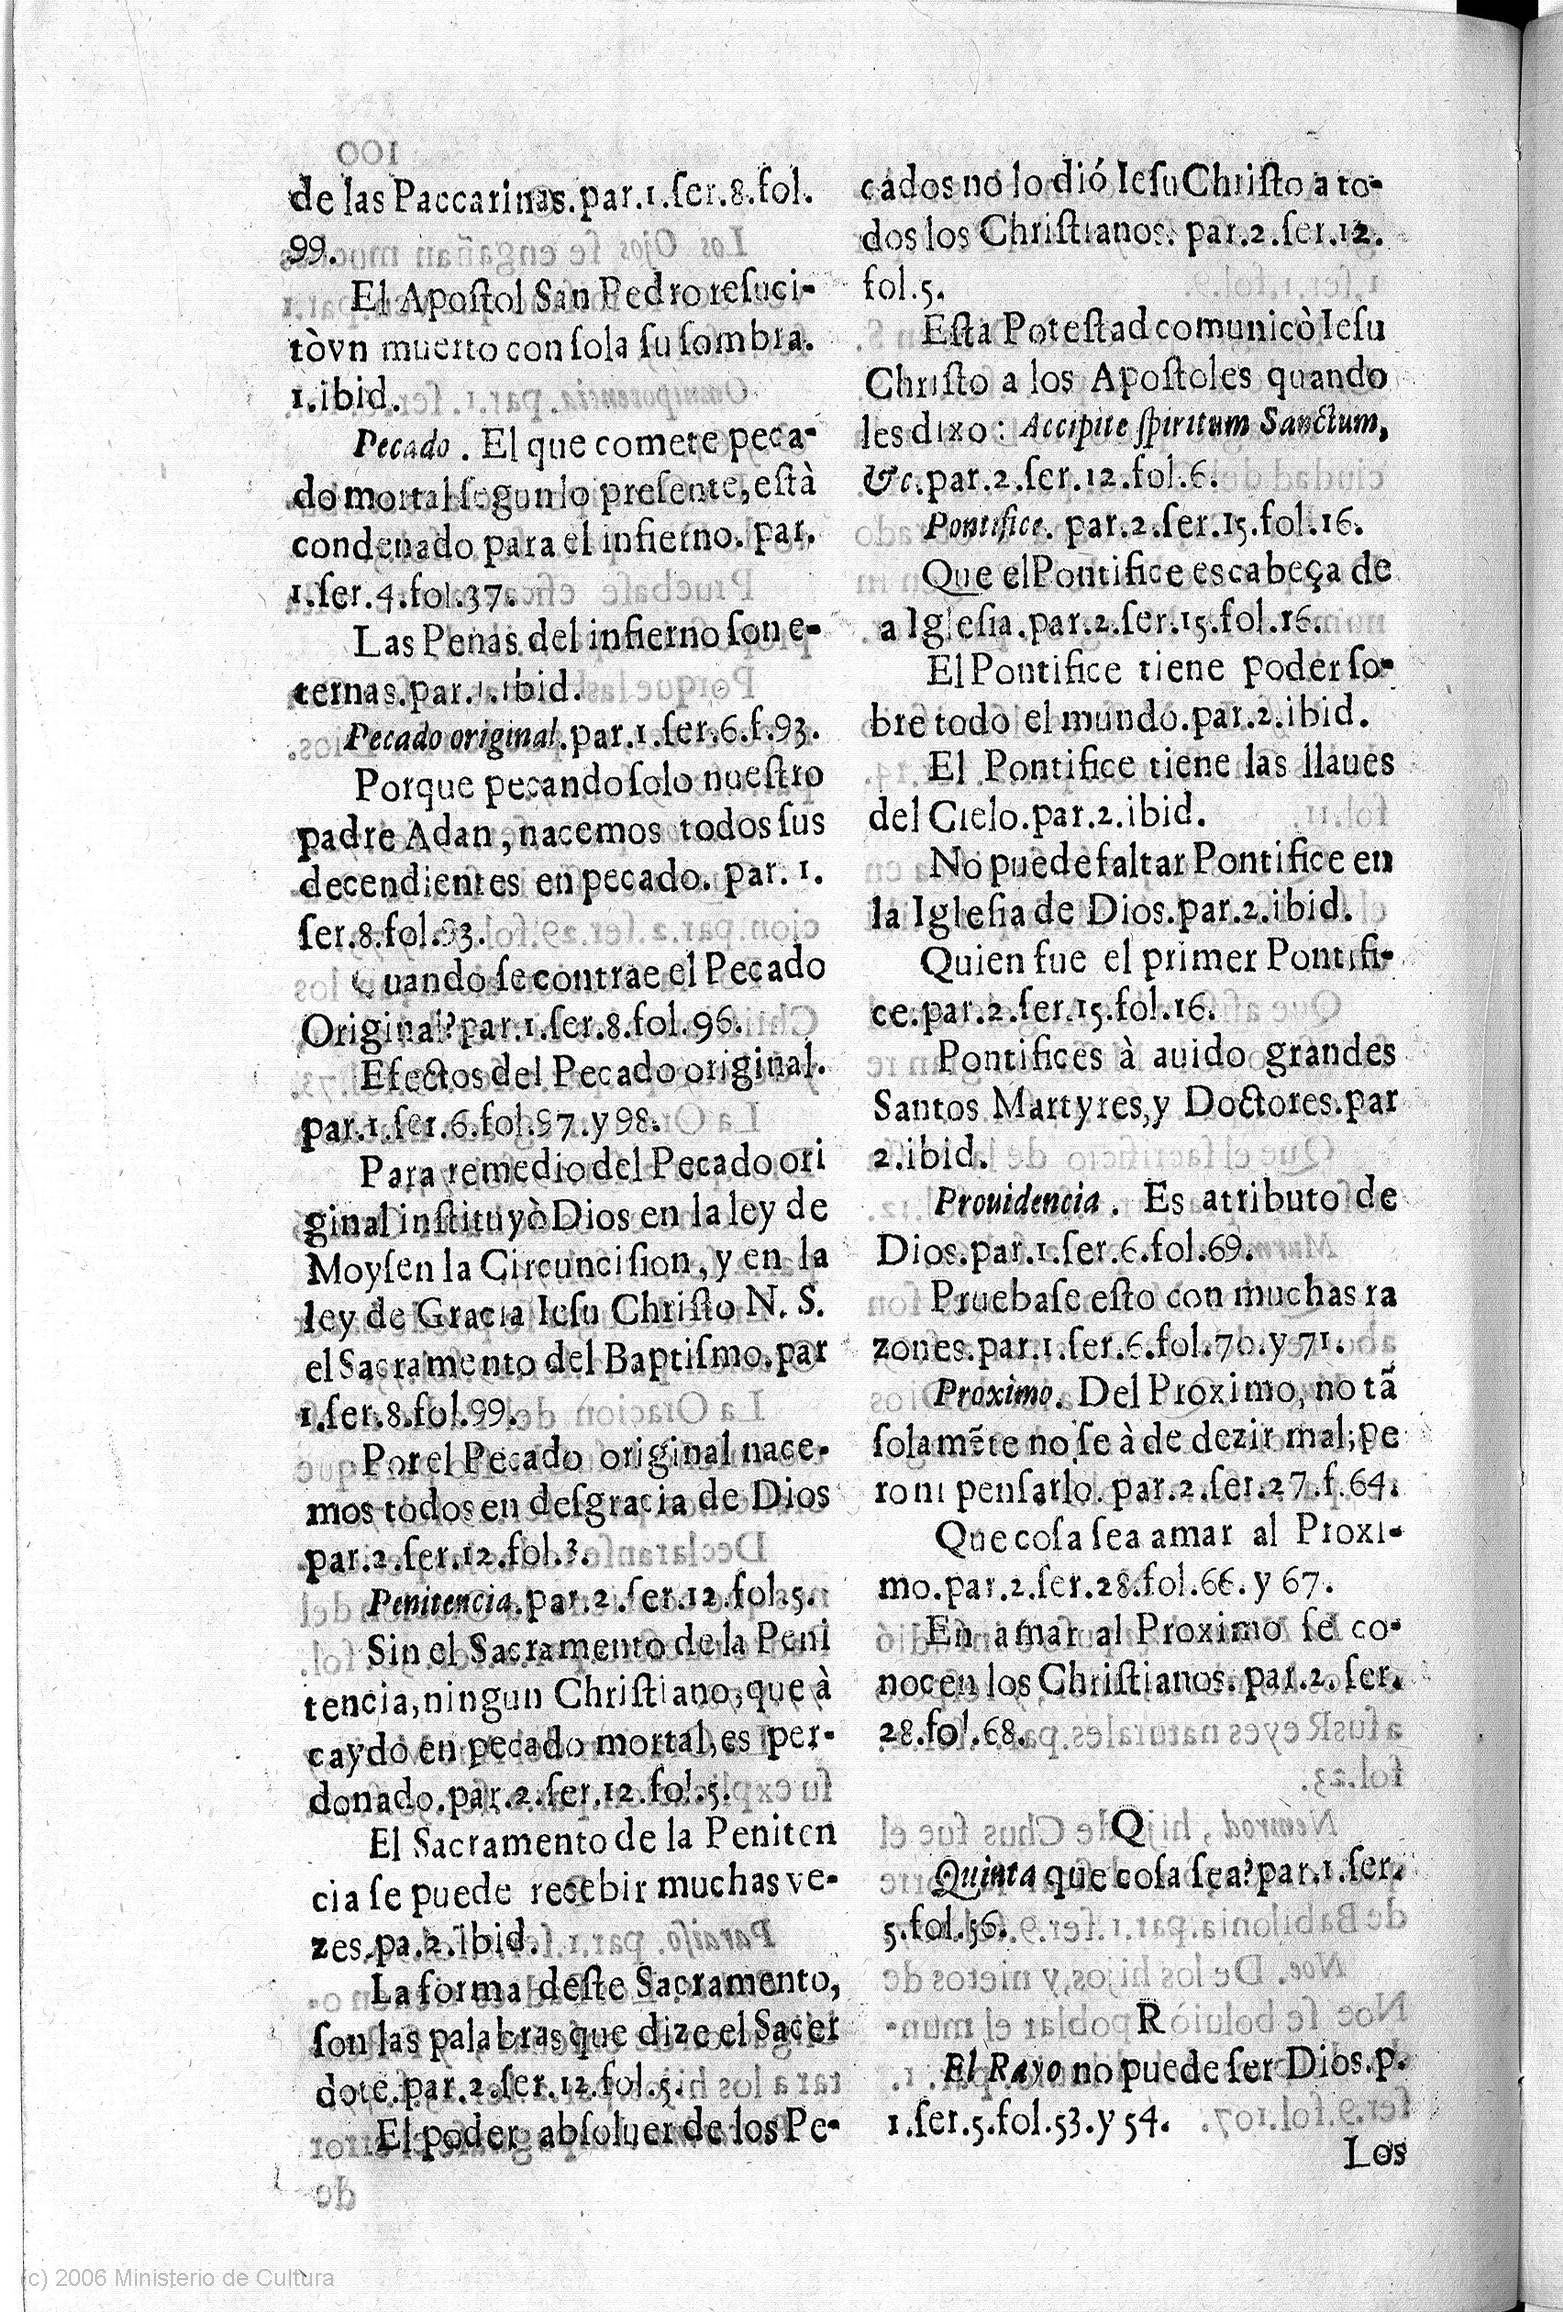 de las Paccarinas.par.1.ser.8.fol.
99.
El Apoſtol San Pedro reſuci-
tò vn muerto con ſola ſu ſombra.
1.ibid.
Pecado. El que comete peca-
do mortal ſegun lo preſente, eſtà
condenado para el infierno. par.
1.ſer.4.fol.37.
Las Penas del infierno ſon e-
ternas.par.1.ibid.
Pecado original.par.1.ſer.6.f.93.
Porque pecando ſolo nueſtro
padre Adan, nacemos todos ſus
decendientes en pecado. par. 1.
ſer.8.fol.93.
Cuando ſe contrae el Pecado
Original?par.1.ſer.8.fol.96.
Efectos del Pecado original.
par.1.ſer.6.fol.97.y 98.
Para remedio del Pecado ori
ginal inſtituyò Dios en la ley de
Moyſen la Circunciſion, y en la
ley de Gracia Ieſu Chriſto N. S.
el Sacramento del Baptiſmo.par
1.ſer.8.fol.99.
Por el Pecado original nace-
mos todos en deſgracia de Dios
par.2.ſer.12.fol.3.
Penitencia.par.2.ſer.12.fol.5.
Sin el Sacramento de la Peni
tencia, ningun Chriſtiano, que à
caydo en pecado mortal, es per-
donado.par.2.ſer.12.fol.5.
El Sacramento de la Peniten
cia ſe puede recebir muchas ve-
zes.pa.2.ibid.
La forma deſte Sacramento,
ſon las palabras que dize el Sacer
dote.par.2.ſer.12.fol.5.
El poder abſoluer de los Pe-
cados no lo dió Ieſu Chriſto a to-
dos los Chriſtianos. par.2.ſer.12.
fol.5.
Eſta Poteſtad comunicò Ieſu
Chriſto a los Apoſtoles quando
les dixo: Accipite ſpiritum Sanctum,
&c.par.2.ſer.12.fol.6.
Pontifice. par.2.ſer.15.fol.16.
Que el Pontifice es cabeça de
a Igleſia.par.2.ſer.15.fol.16.
El Pontifice tiene poder ſo-
bre todo el mundo.par.2.ibid.
El Pontifice tiene las llaues
del Cielo.par.2.ibid.
No puede faltar Pontifice en
la Igleſia de Dios.par.2.ibid.
Quien fue el primer Pontifi-
ce.par.2.ſer.15.fol.16.
Pontifices à auido grandes
Santos Martyres, y Doctores.par
2.ibid.
Prouidencia. Es atributo de
Dios.par.1.ſer.6.fol.69.
Pruebaſe eſto con muchas ra
zones.par.1.ſer.6.fol.70.y 71.
Proximo. Del Proximo, no tã
ſolamẽte no ſe à de dezir mal; pe
ro ni penſarlo. par.2.ſer.27.f.64.
Que coſa ſea amar al Proxi-
mo.par.2.ſer.28.fol.66. y 67.
En amar al Proximo ſe co-
nocen los Chriſtianos. par.2. ſer.
28.fol.68.
Q
Quinta que coſa ſea?par.1.ſer.
5.fol.56.
R
El Rayo no puede ſer Dios.p.
1.ſer.5.fol.53.y 54.
Los
(c) 2006 Ministerio de Cultura